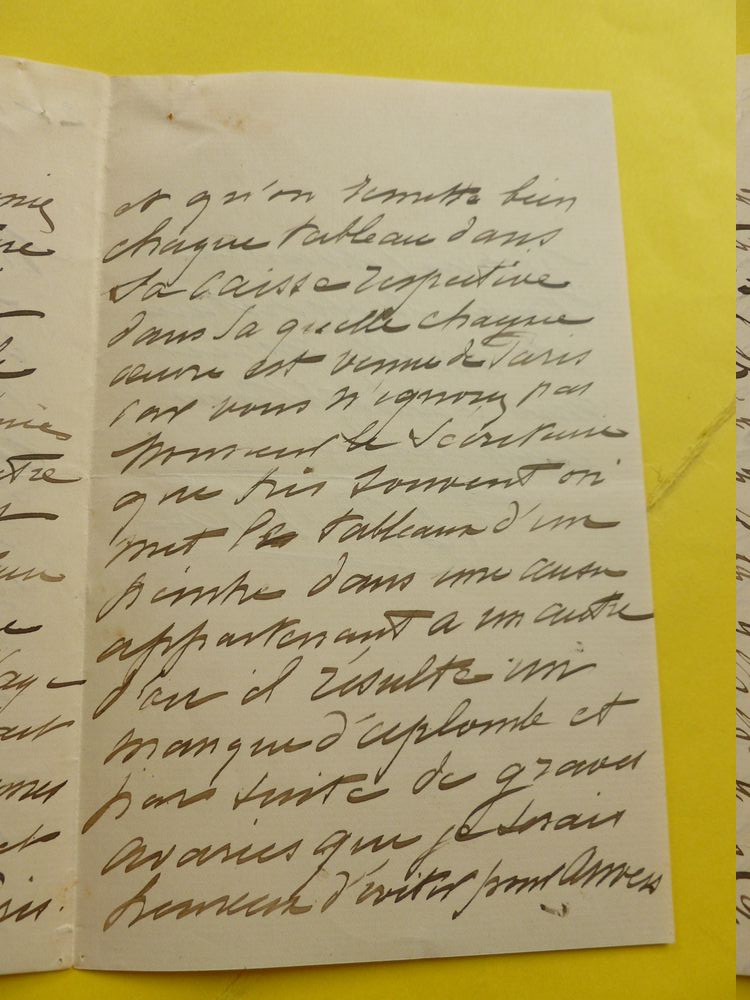 et qu'on remette bien
chaque tableau dans
sa caisse respective
dans la quelle chaque
œuvre est venue de Paris
car vous n'ignorez pas
monsieur le Secrétaire
que très souvent on
met les tableaux d'un
peintre dans une caisse
appartenant a un autre
d'ou il résulte un
manque d'aplomb et
par suite de graves
avaries que je serais
heureux d'éviter pour Anvers